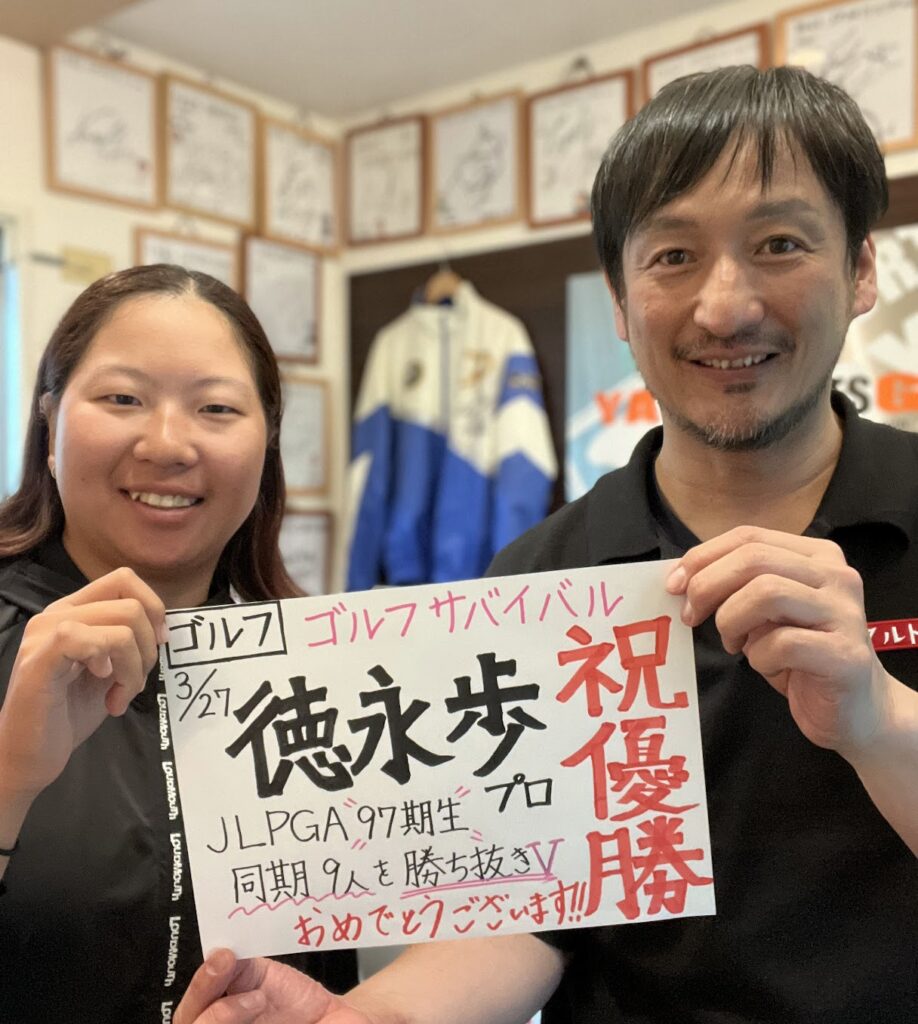 ゴルフ
ゴルフサバイバル
3/27
徳永歩
プロ
祝優勝
JLPGA "97期生"
同期9人を勝ち抜きV
おめでとうございます!!
LOUDMOUTH
LOUDMOUTH
LOUDMOUTH
LOUDMOUTH
LOUDMOUTH
LOUDMOUTH
YA
G
ルト